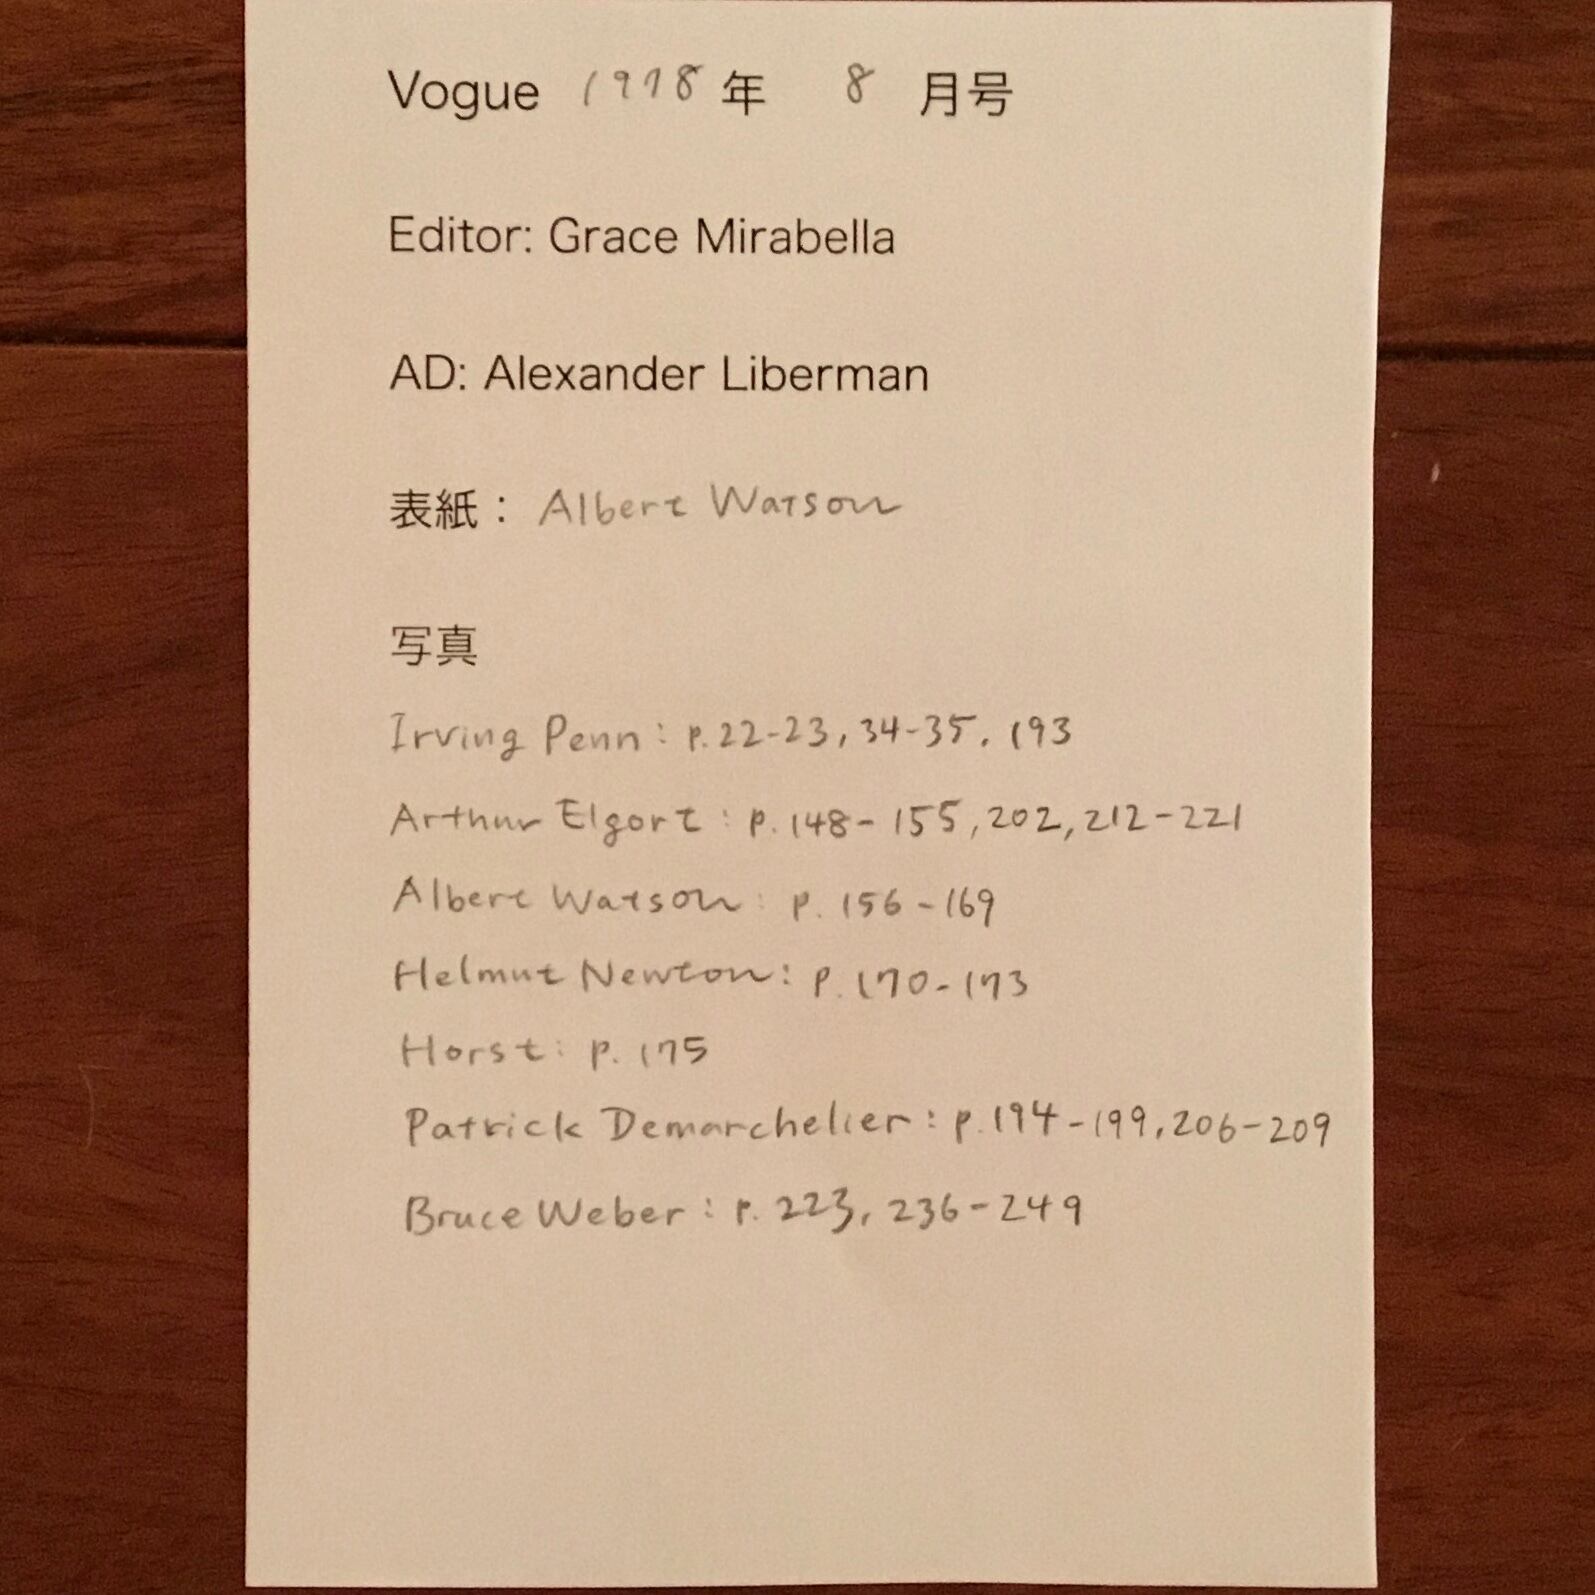 Vogue 1978年 8月号
Editor: Grace Mirabella
AD: Alexander Liberman
表紙： Albert Watson
写真
Irving Penn: p.22-23, 34-35, 193
Arthur Elgort: p.148-155, 202, 212-221
Albert Watson: p.156-169
Helmut Newton: p.170-173
Horst: p.175
Patrick Demarchelier: p.194-199, 206-209
Bruce Weber: p.223, 236-249